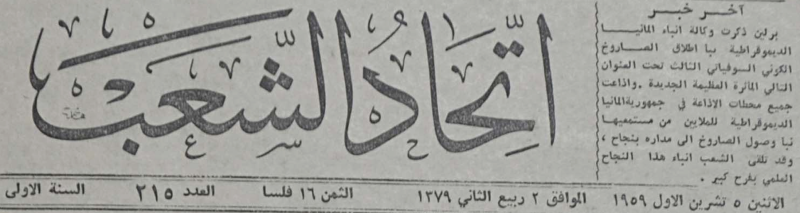 آخر خبر
برلين ذكرت وكالة انباء المانيا
الديموقراطية نبا اطلاق الصاروخ
الكوني السوفياتي الثالث تحت العنوان
التالي المأثرة العظيمة الجديدة . واذاعت
جميع محطات الاذاعة في جمهورية المانيا
الديموقراطية للملايين من مستمعيها
نبا وصول الصاروخ الى مداره بنجاح ،
وقد تلقى الشعب انباء هذا النجاح
العلمي بفرح كبير .
اتحاد الشعب
الاثنين ٥ تشرين الاول ١٩٥٩ الموافق ٢ ربيع الثاني ١٣٧٩ الثمن ١٦ فلسا العدد ٢١٥ السنة الاولى